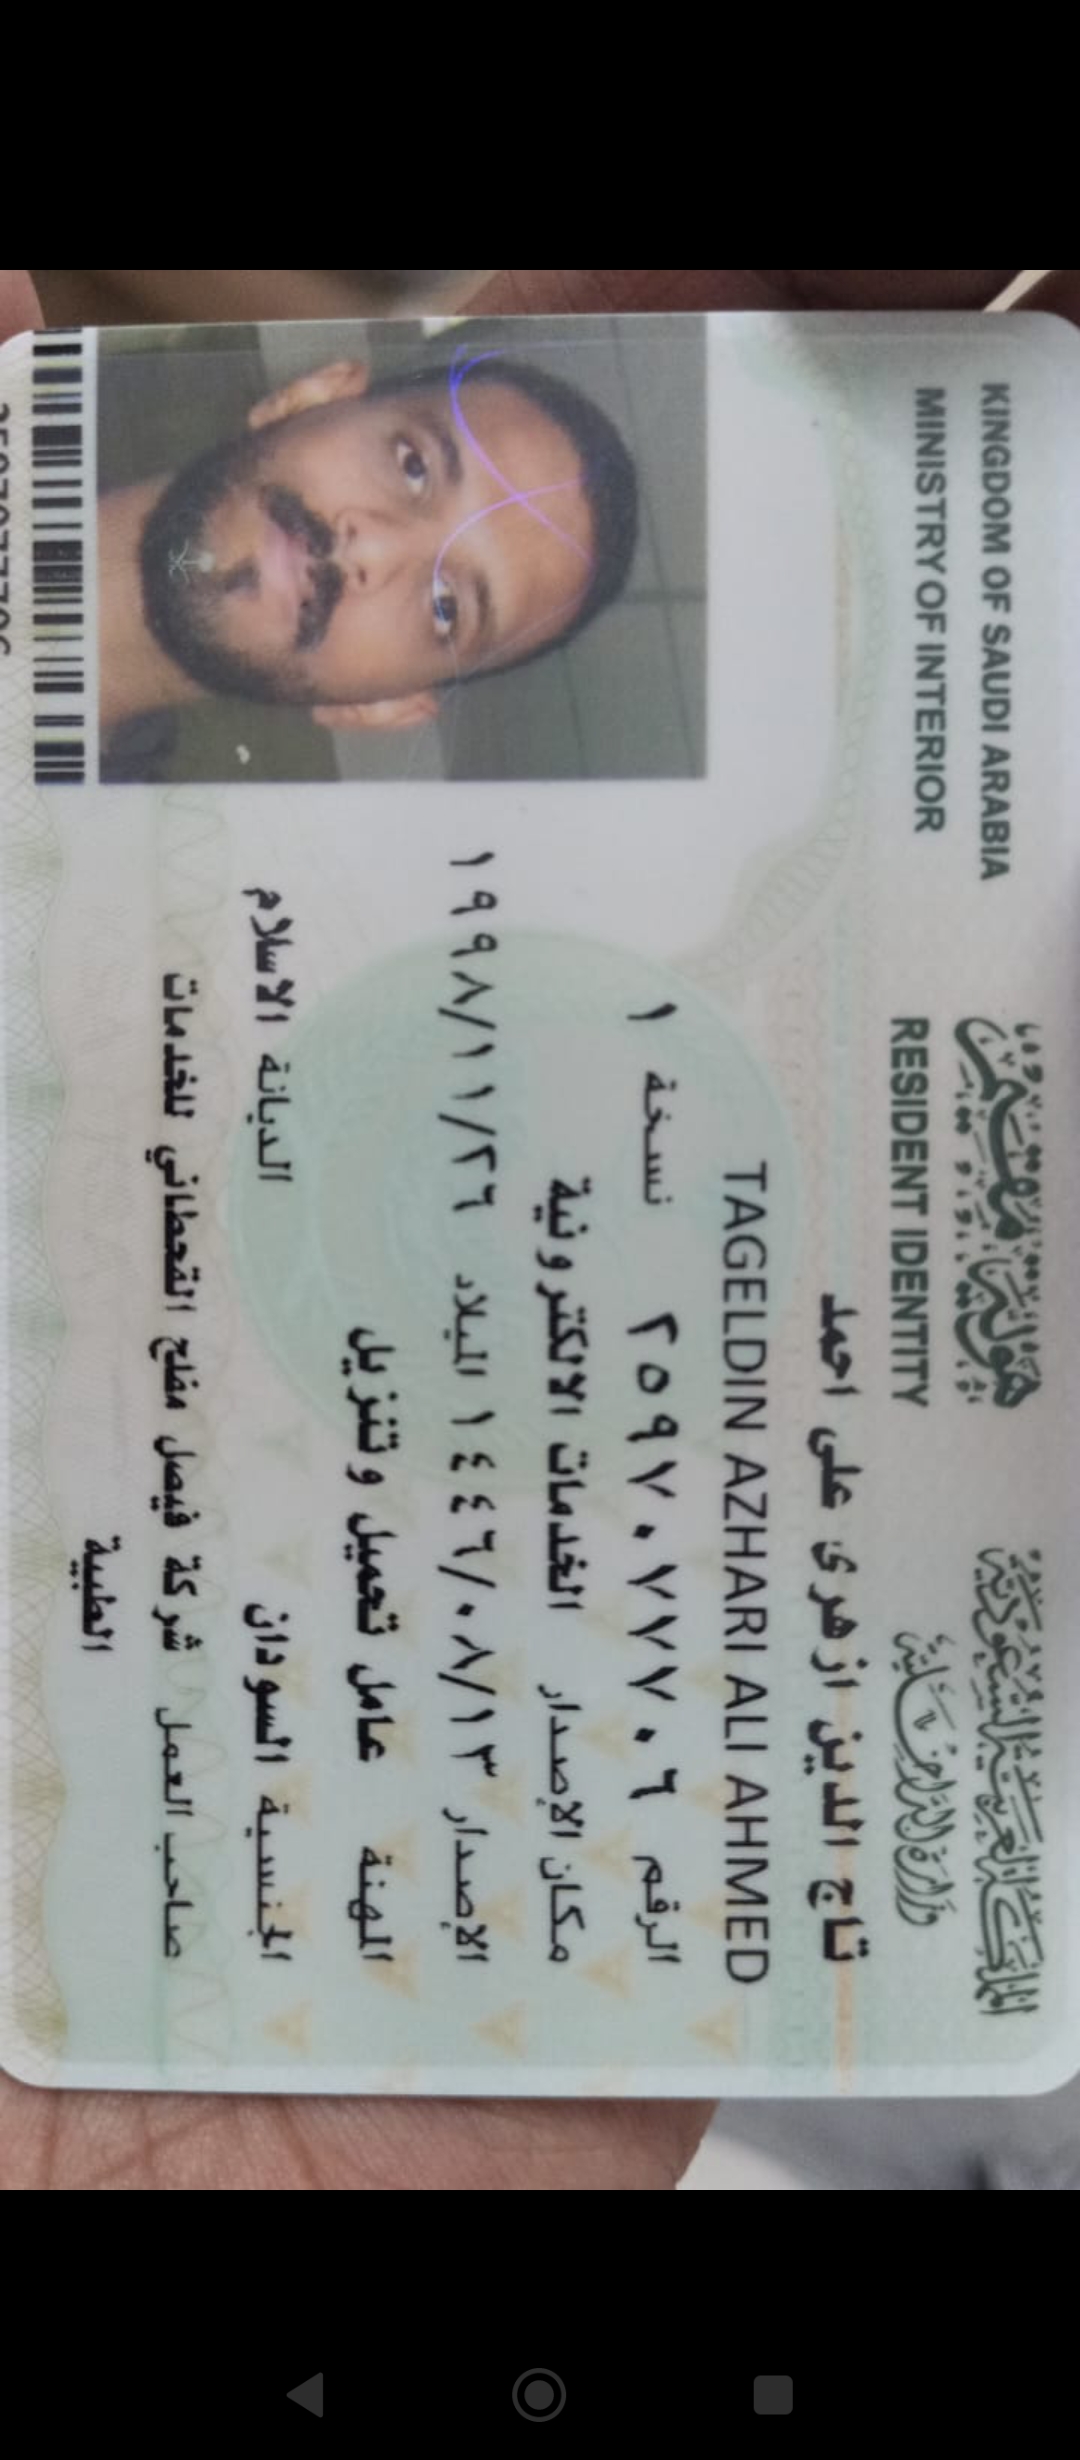 KINGDOM OF SAUDI ARABIA
MINISTRY OF INTERIOR
هوية مقيم
RESIDENT IDENTITY
المملكة العربية السعودية
وزارة الداخلية
تاج الدين ازهرى على احمد
TAGELDIN AZHARI ALI AHMED
الرقم ٢٥٩٧٠٧٧٧٠٦ نسخة ١
مكان الإصدار الخدمات الالكترونية
الإصدار ١٤٤٦/٠٨/١٣ الميلاد ١٩٩٨/١١/٢٦
المهنة عامل تحميل وتنزيل
الجنسية السودان الديانة الاسلام
صاحب العمل شركة فيصل مفلح القحطاني للخدمات
الطبية